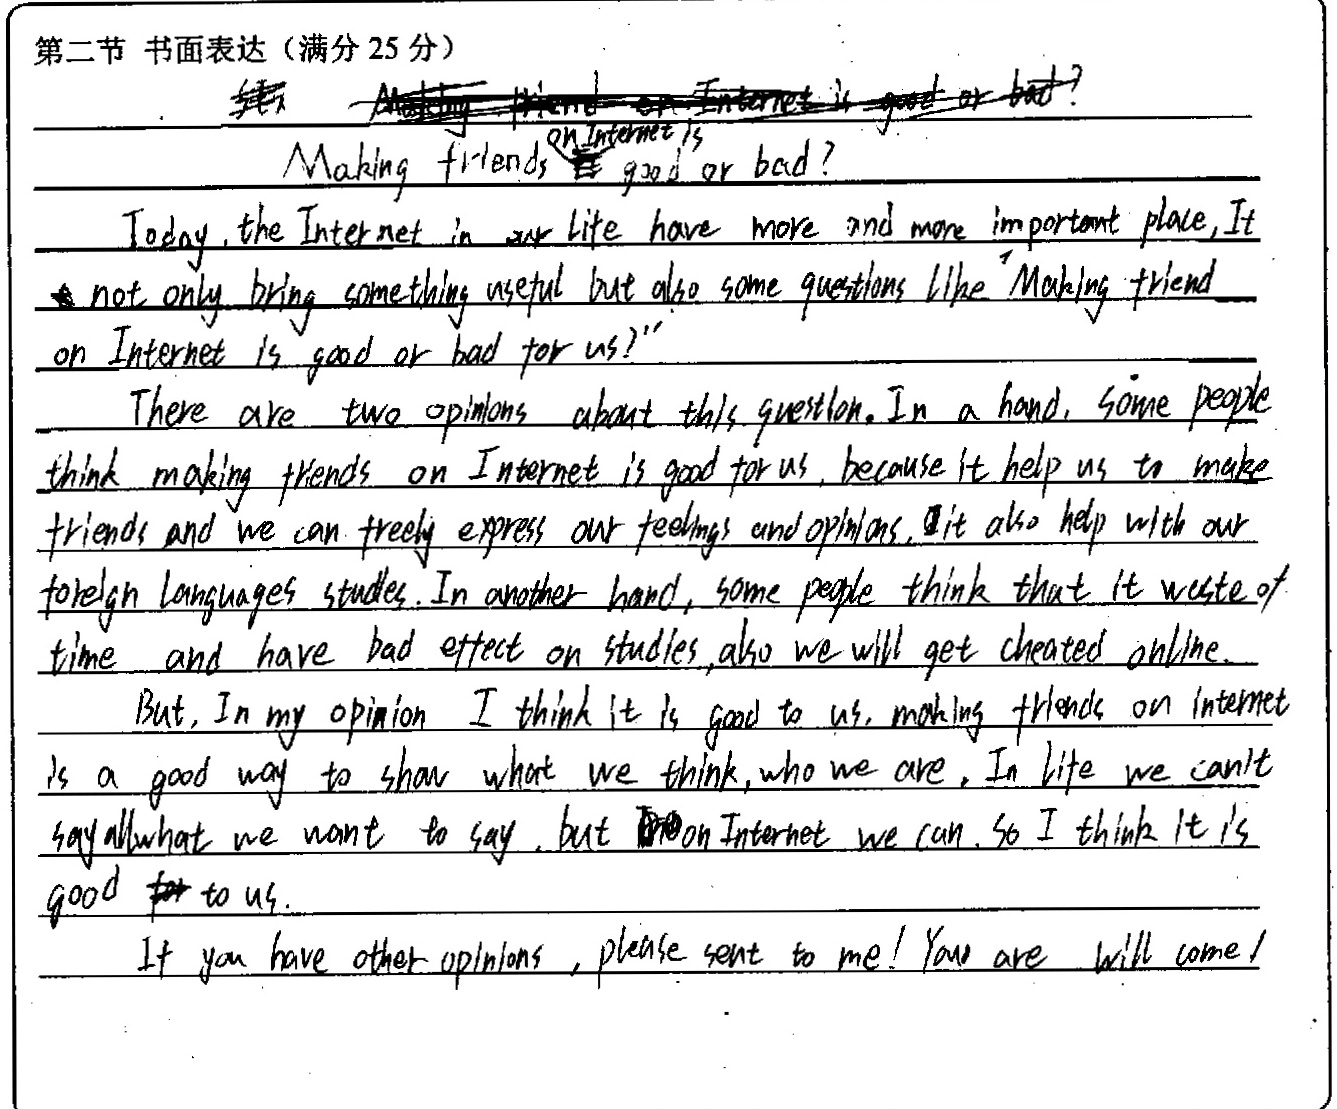 第二节 书面表达（满分 25 分）
Making friend on Internet is good or bad?
Making friends on Internet is good or bad?
Today, the Internet in our life have more and more important place, It
not only bring something useful but also some questions like "Making friend
on Internet is good or bad for us?"
There are two opinions about this question. In a hand, some people
think making friends on Internet is good for us, because it help us to make
friends and we can freely express our feelings and opinions, it also help with our
foreign languages studies. In another hand, some people think that it weste of
time and have bad effect on studies, also we will get cheated online.
But, In my opinion I think it is good to us, making friends on internet
is a good way to show what we think, who we are, In life we can't
say all what we want to say, but on Internet we can. So I think it is
good to us.
If you have other opinions, please sent to me! You are will come!